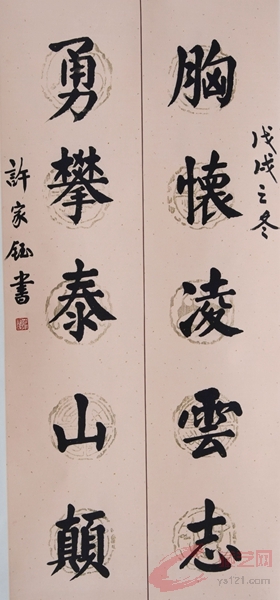 戊戌之冬
胸懷凌雲志
勇攀泰山顛
許家鈺書
ys121.com